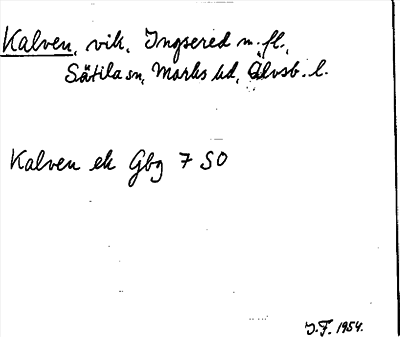 Kalven, vik, Ingsered m. fl.,
Sätila sn, Marks hd, Älvsb. l.
Kalven ek Gbg 7 SO
J.F. 1954.